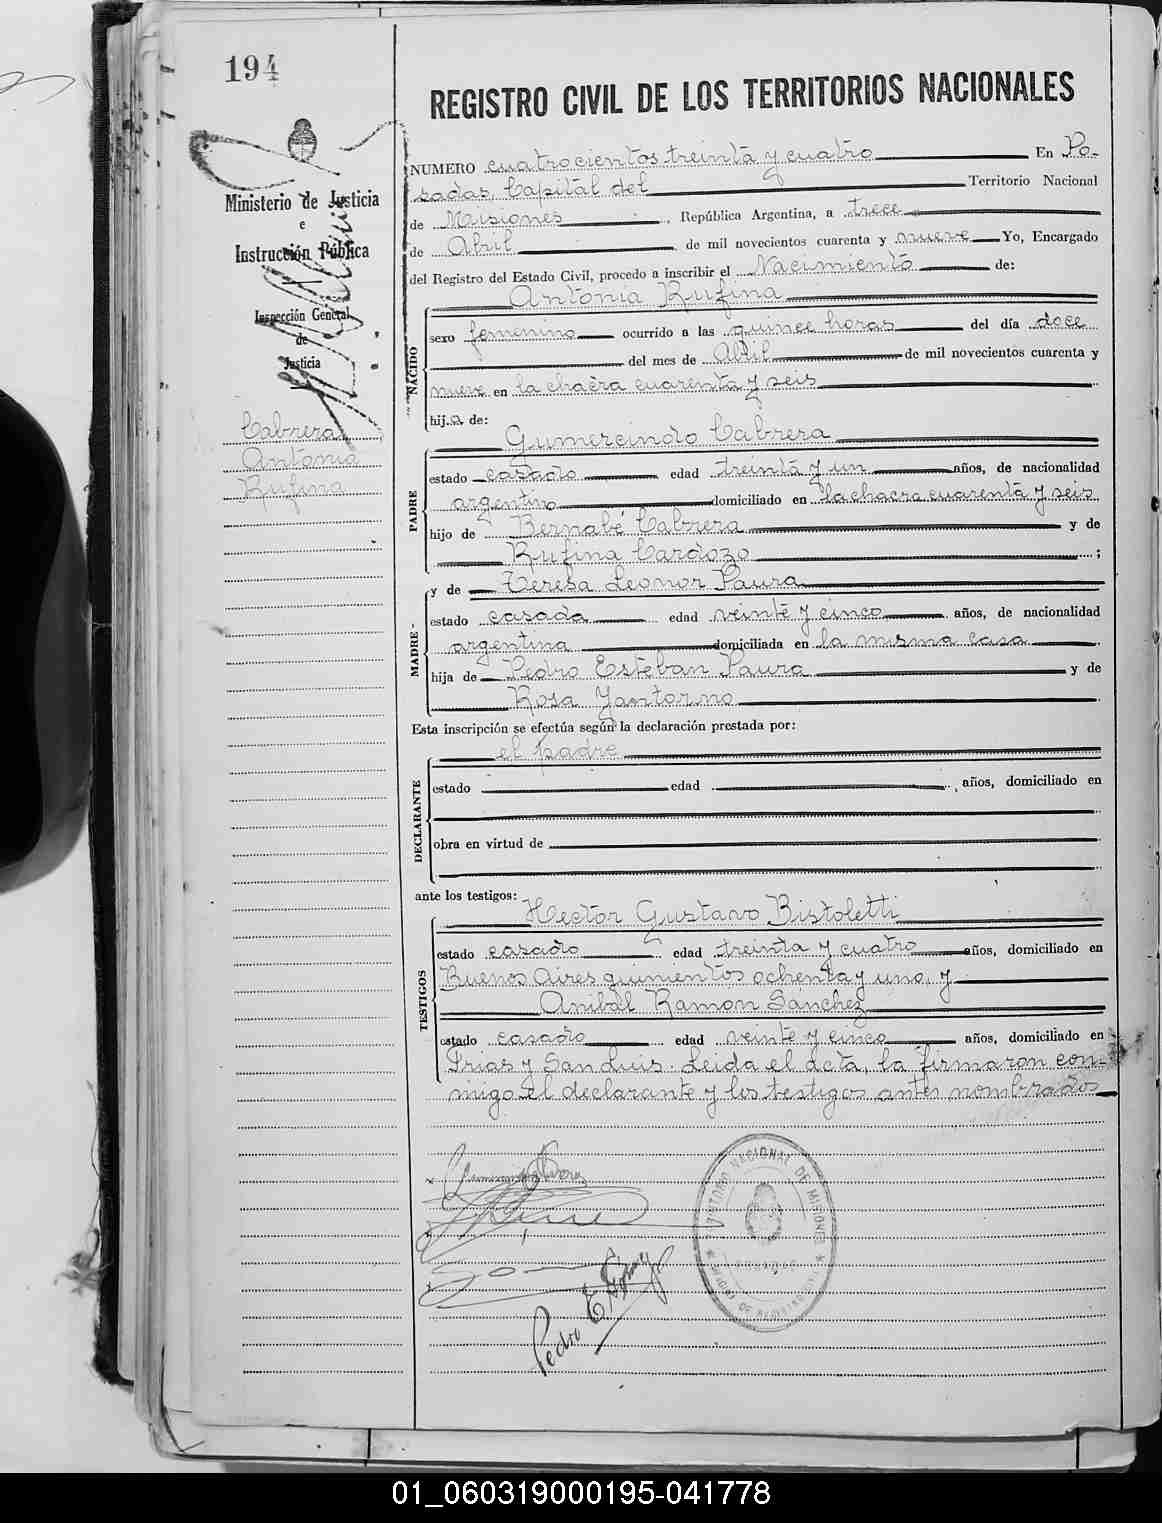 194
REGISTRO CIVIL DE LOS TERRITORIOS NACIONALES
Ministerio de Justicia
e
Instrucción Pública
Inspección General
de
Justicia
Cabrera
Antonia
Rufina
NUMERO cuatrocientos treinta y cuatro En Po-
sadas, Capital del Territorio Nacional
de Misiones, República Argentina, a trece
de Abril de mil novecientos cuarenta y nueve Yo, Encargado
del Registro del Estado Civil, procedo a inscribir el Nacimiento de:
NACIDO
Antonia Rufina
sexo femenino ocurrido a las quince horas del día doce
del mes de Abril de mil novecientos cuarenta y
nueve en la chacra cuarenta y seis
hija de:
PADRE
Gumercindo Cabrera
estado casado edad treinta y un años, de nacionalidad
argentino domiciliado en la chacra cuarenta y seis
hijo de Bernabé Cabrera y de
Rufina Cardozo ;
MADRE
y de Teresa Leonor Laura
estado casada edad veinte y cinco años, de nacionalidad
argentina domiciliada en la misma casa
hija de Pedro Esteban Laura y de
Rosa Yantorno
Esta inscripción se efectúa según la declaración prestada por:
DECLARANTE
el padre
estado edad , años, domiciliado en
obra en virtud de
ante los testigos:
TESTIGOS
Hector Gustavo Bistoletti
estado casado edad treinta y cuatro años, domiciliado en
Buenos Aires quinientos ochenta y uno, y
Anibal Ramon Sanchez
estado casado edad veinte y cinco años, domiciliado en
Frias y San Luis. Leida el acta, la firmaron con-
migo el declarante y los testigos antes nombrados
TERRITORIO NACIONAL DE MISIONES
Pedro E.
01_060319000195-041778